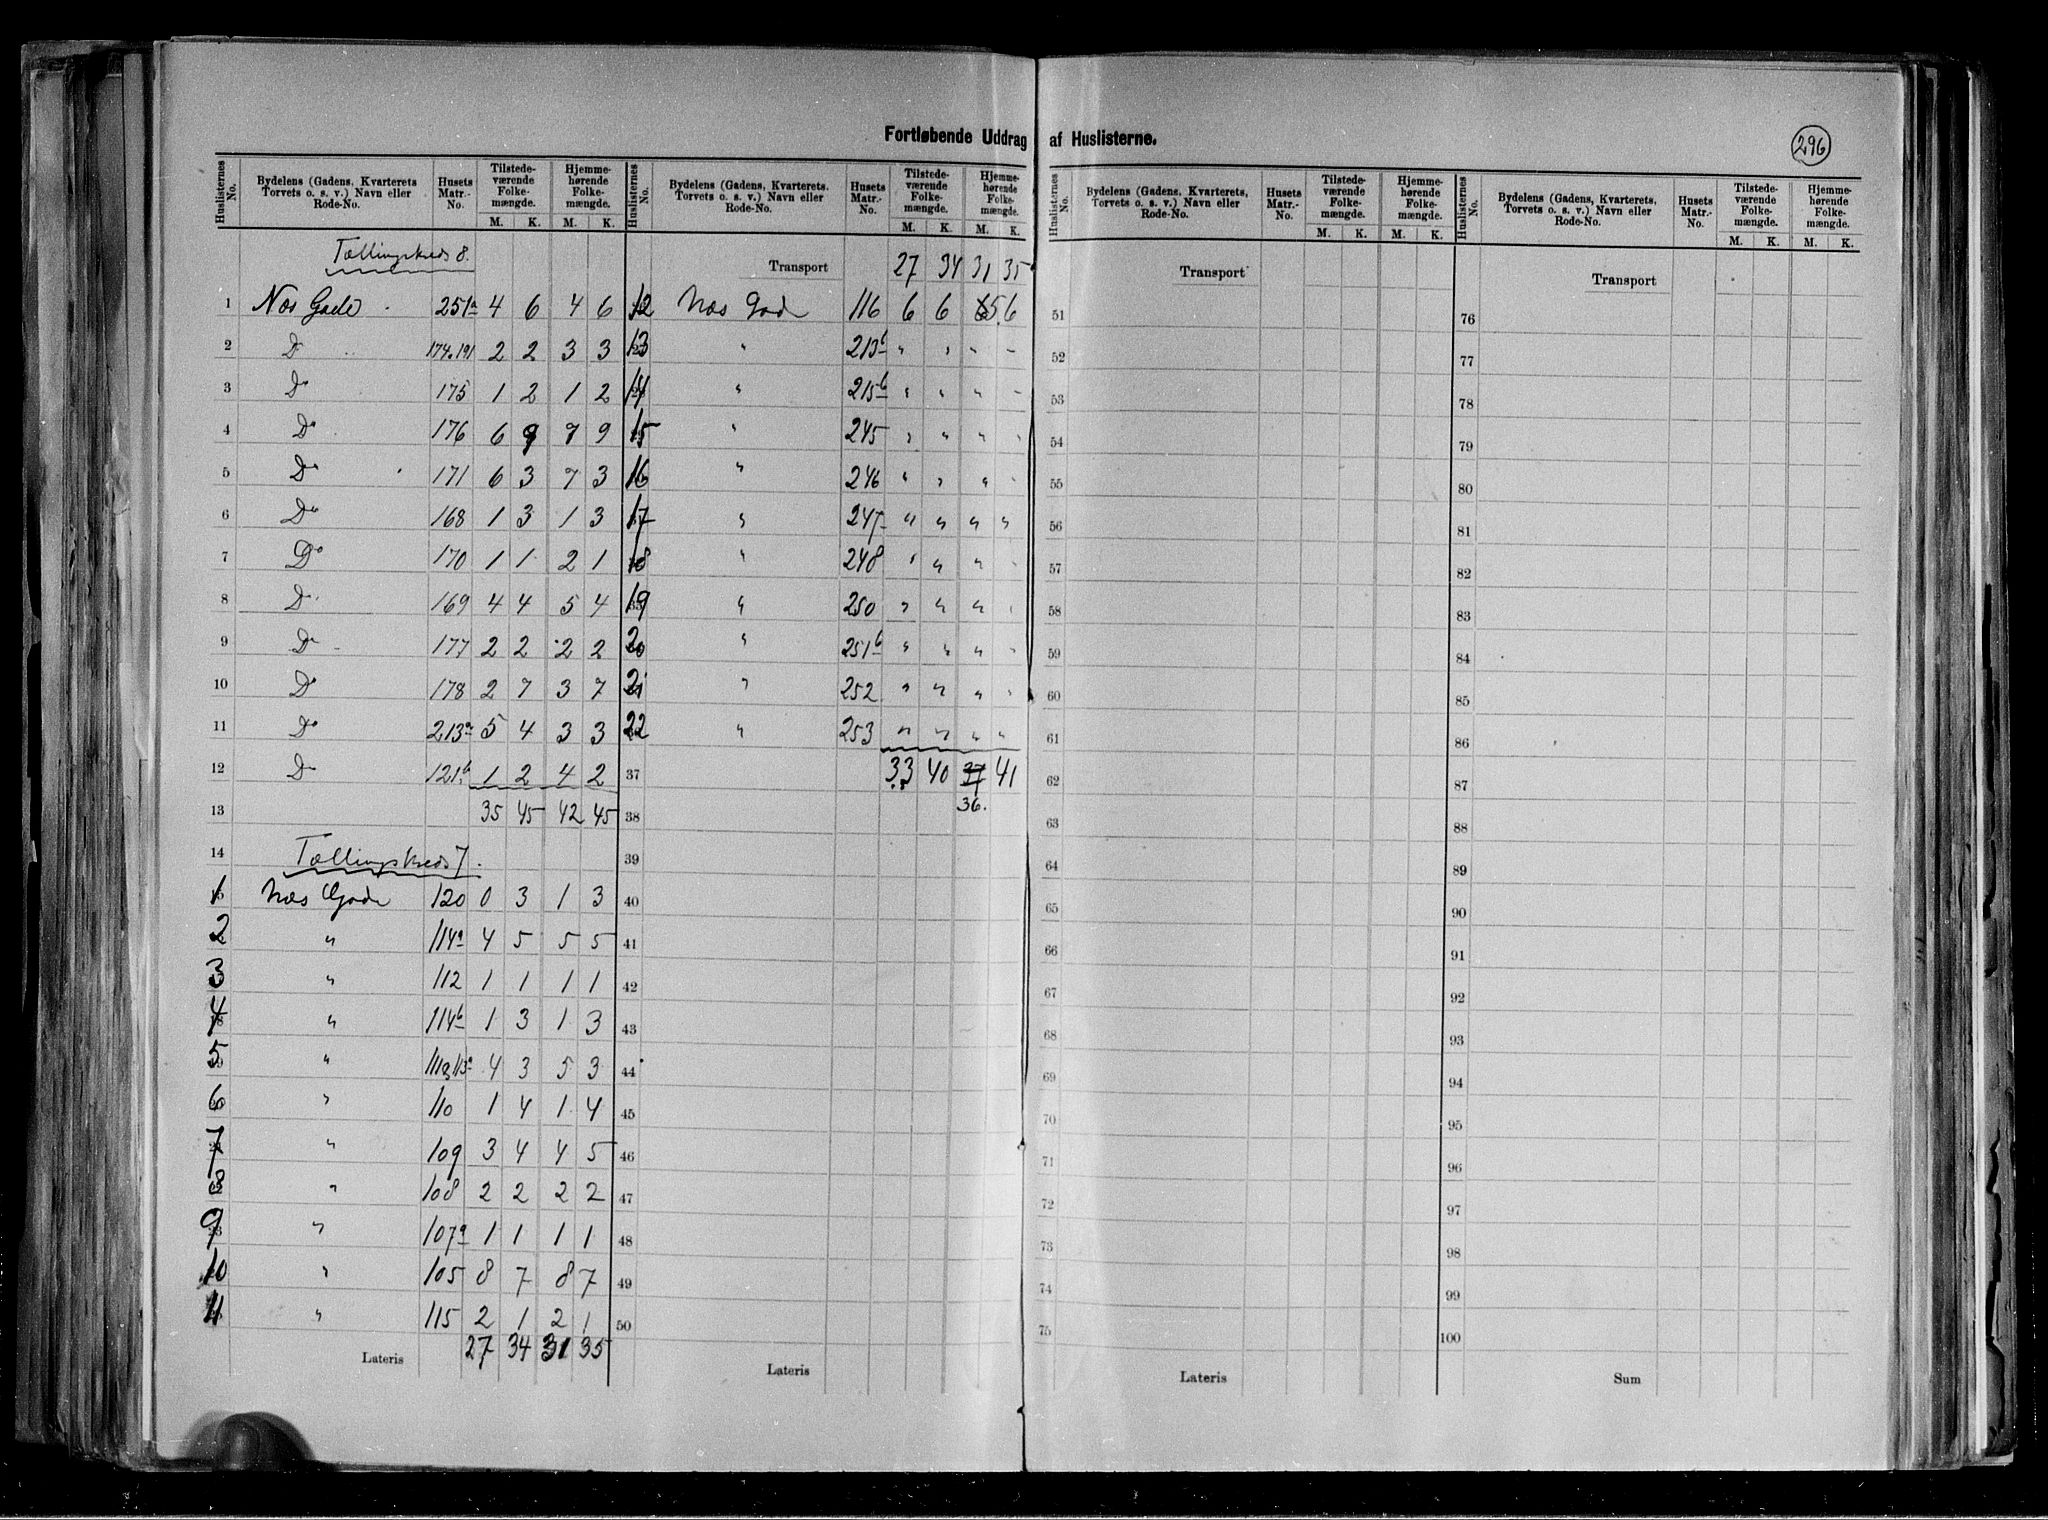 Fortløbende Uddrag af Huslisterne.
296
Huslisternes No. | Bydelens (Gadens, Kvarterets Torvets o. s. v.) Navn eller Rode-No. | Husets Matr.-No. | Tilstedeværende Folkemængde. M. K. | Hjemmehørende Folkemængde. M. K.
Tællingskreds 8.
1 Næs Gade 251a 4 6 4 6
2 Do 174.191 2 2 3 3
3 Do 175 1 2 1 2
4 Do 176 6 9 7 9
5 Do 171 6 3 7 3
6 Do 168 1 3 1 3
7 Do 170 1 1 2 1
8 Do 169 4 4 5 4
9 Do 177 2 2 2 2
10 Do 178 2 7 3 7
11 Do 213a 5 4 3 3
12 Do 121b 1 2 4 2
13 35 45 42 45
14 Tællingskreds 7.
1 Næs Gade 120 0 3 1 3
2 " 114a 4 5 5 5
3 " 112 1 1 1 1
4 " 114b 1 3 1 3
5 " 4 3 5 3
6 " 110 1 4 1 4
7 " 109 3 4 4 5
8 " 108 2 2 2 2
9 " 107a 1 1 1 1
10 " 105 8 7 8 7
11 " 115 2 1 2 1
Lateris 27 34 31 35
Huslisternes No. | Bydelens (Gadens, Kvarterets, Torvets o. s. v.) Navn eller Rode-No. | Husets Matr.-No. | Tilstedeværende Folkemængde. M. K. | Hjemmehørende Folkemængde. M. K.
Transport 27 34 31 35
12 Næs Gade 116 6 6 5 6
13 " 213b " " " "
14 " 215b " " " "
15 " 245 " " " "
16 " 246 " " " "
17 " 247 " " " "
18 " 248 " " " "
19 " 250 " " " "
20 " 251b " " " "
21 " 252 " " " "
22 " 253 " " " "
37 33 40 37 41
36.
38
39
40
41
42
43
44
45
46
47
48
49
50
Lateris
Huslisternes No. | Bydelens (Gadens, Kvarterets, Torvets o. s. v.) Navn eller Rode-No. | Husets Matr.-No. | Tilstedeværende Folkemængde. M. K. | Hjemmehørende Folkemængde. M. K.
Transport
51
52
53
54
55
56
57
58
59
60
61
62
63
64
65
66
67
68
69
70
71
72
73
74
75
Lateris
Huslisternes No. | Bydelens (Gadens, Kvarterets, Torvets o. s. v.) Navn eller Rode-No. | Husets Matr.-No. | Tilstedeværende Folkemængde. M. K. | Hjemmehørende Folkemængde. M. K.
Transport
76
77
78
79
80
81
82
83
84
85
86
87
88
89
90
91
92
93
94
95
96
97
98
99
100
Sum